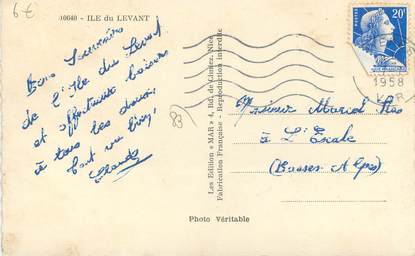 6€
10640 - ILE du LEVANT
Bons Souvenirs
de l'Ile du Levant
et affectueux baisers
à tous les deux.
Tout va bien
83
Les Edition "MAR" 4, Bd. de Cimiez, Nice
Fabrication Française - Reproduction interdite
Photo Véritable
POSTES
20F
1958
VAR
Monsieur Marcel
à L'Escale
(Basses Alpes)